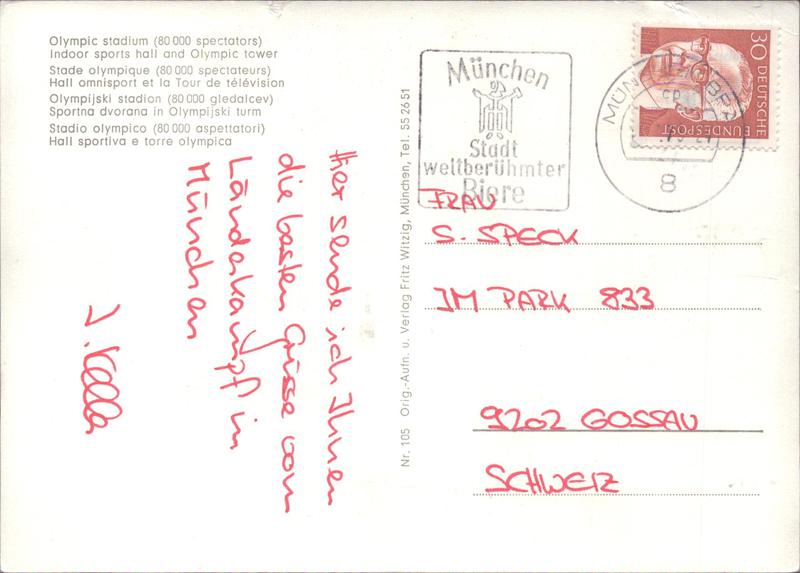 Olympic stadium (80 000 spectators)
Indoor sports hall and Olympic tower
Stade olympique (80 000 spectateurs)
Hall omnisport et la Tour de télévision
Olympijski stadion (80 000 gledalcev)
Sportna dvorana in Olympijski turm
Stadio olympico (80 000 aspettatori)
Hall sportiva e torre olympica
Hier sende ich Ihnen
die besten Grüsse vom
Länderkampf in
München
J. Keller
Nr. 105 Orig.-Aufn. u. Verlag Fritz Witzig, München, Tel. 55 26 51
München
Stadt
weltberühmter
Biere
8
30 DEUTSCHE
BUNDESPOST
FRAU
S. SPECK
IM PARK 833
9202 GOSSAU
SCHWEIZ